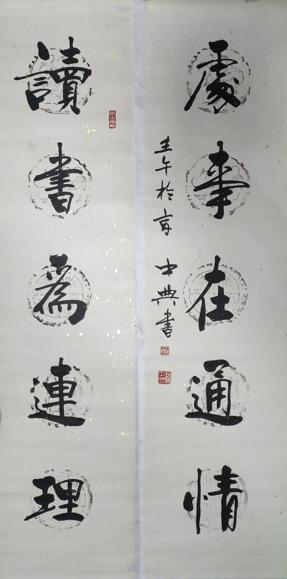 讀書爲連理
處事在通情
壬午於京
中典書